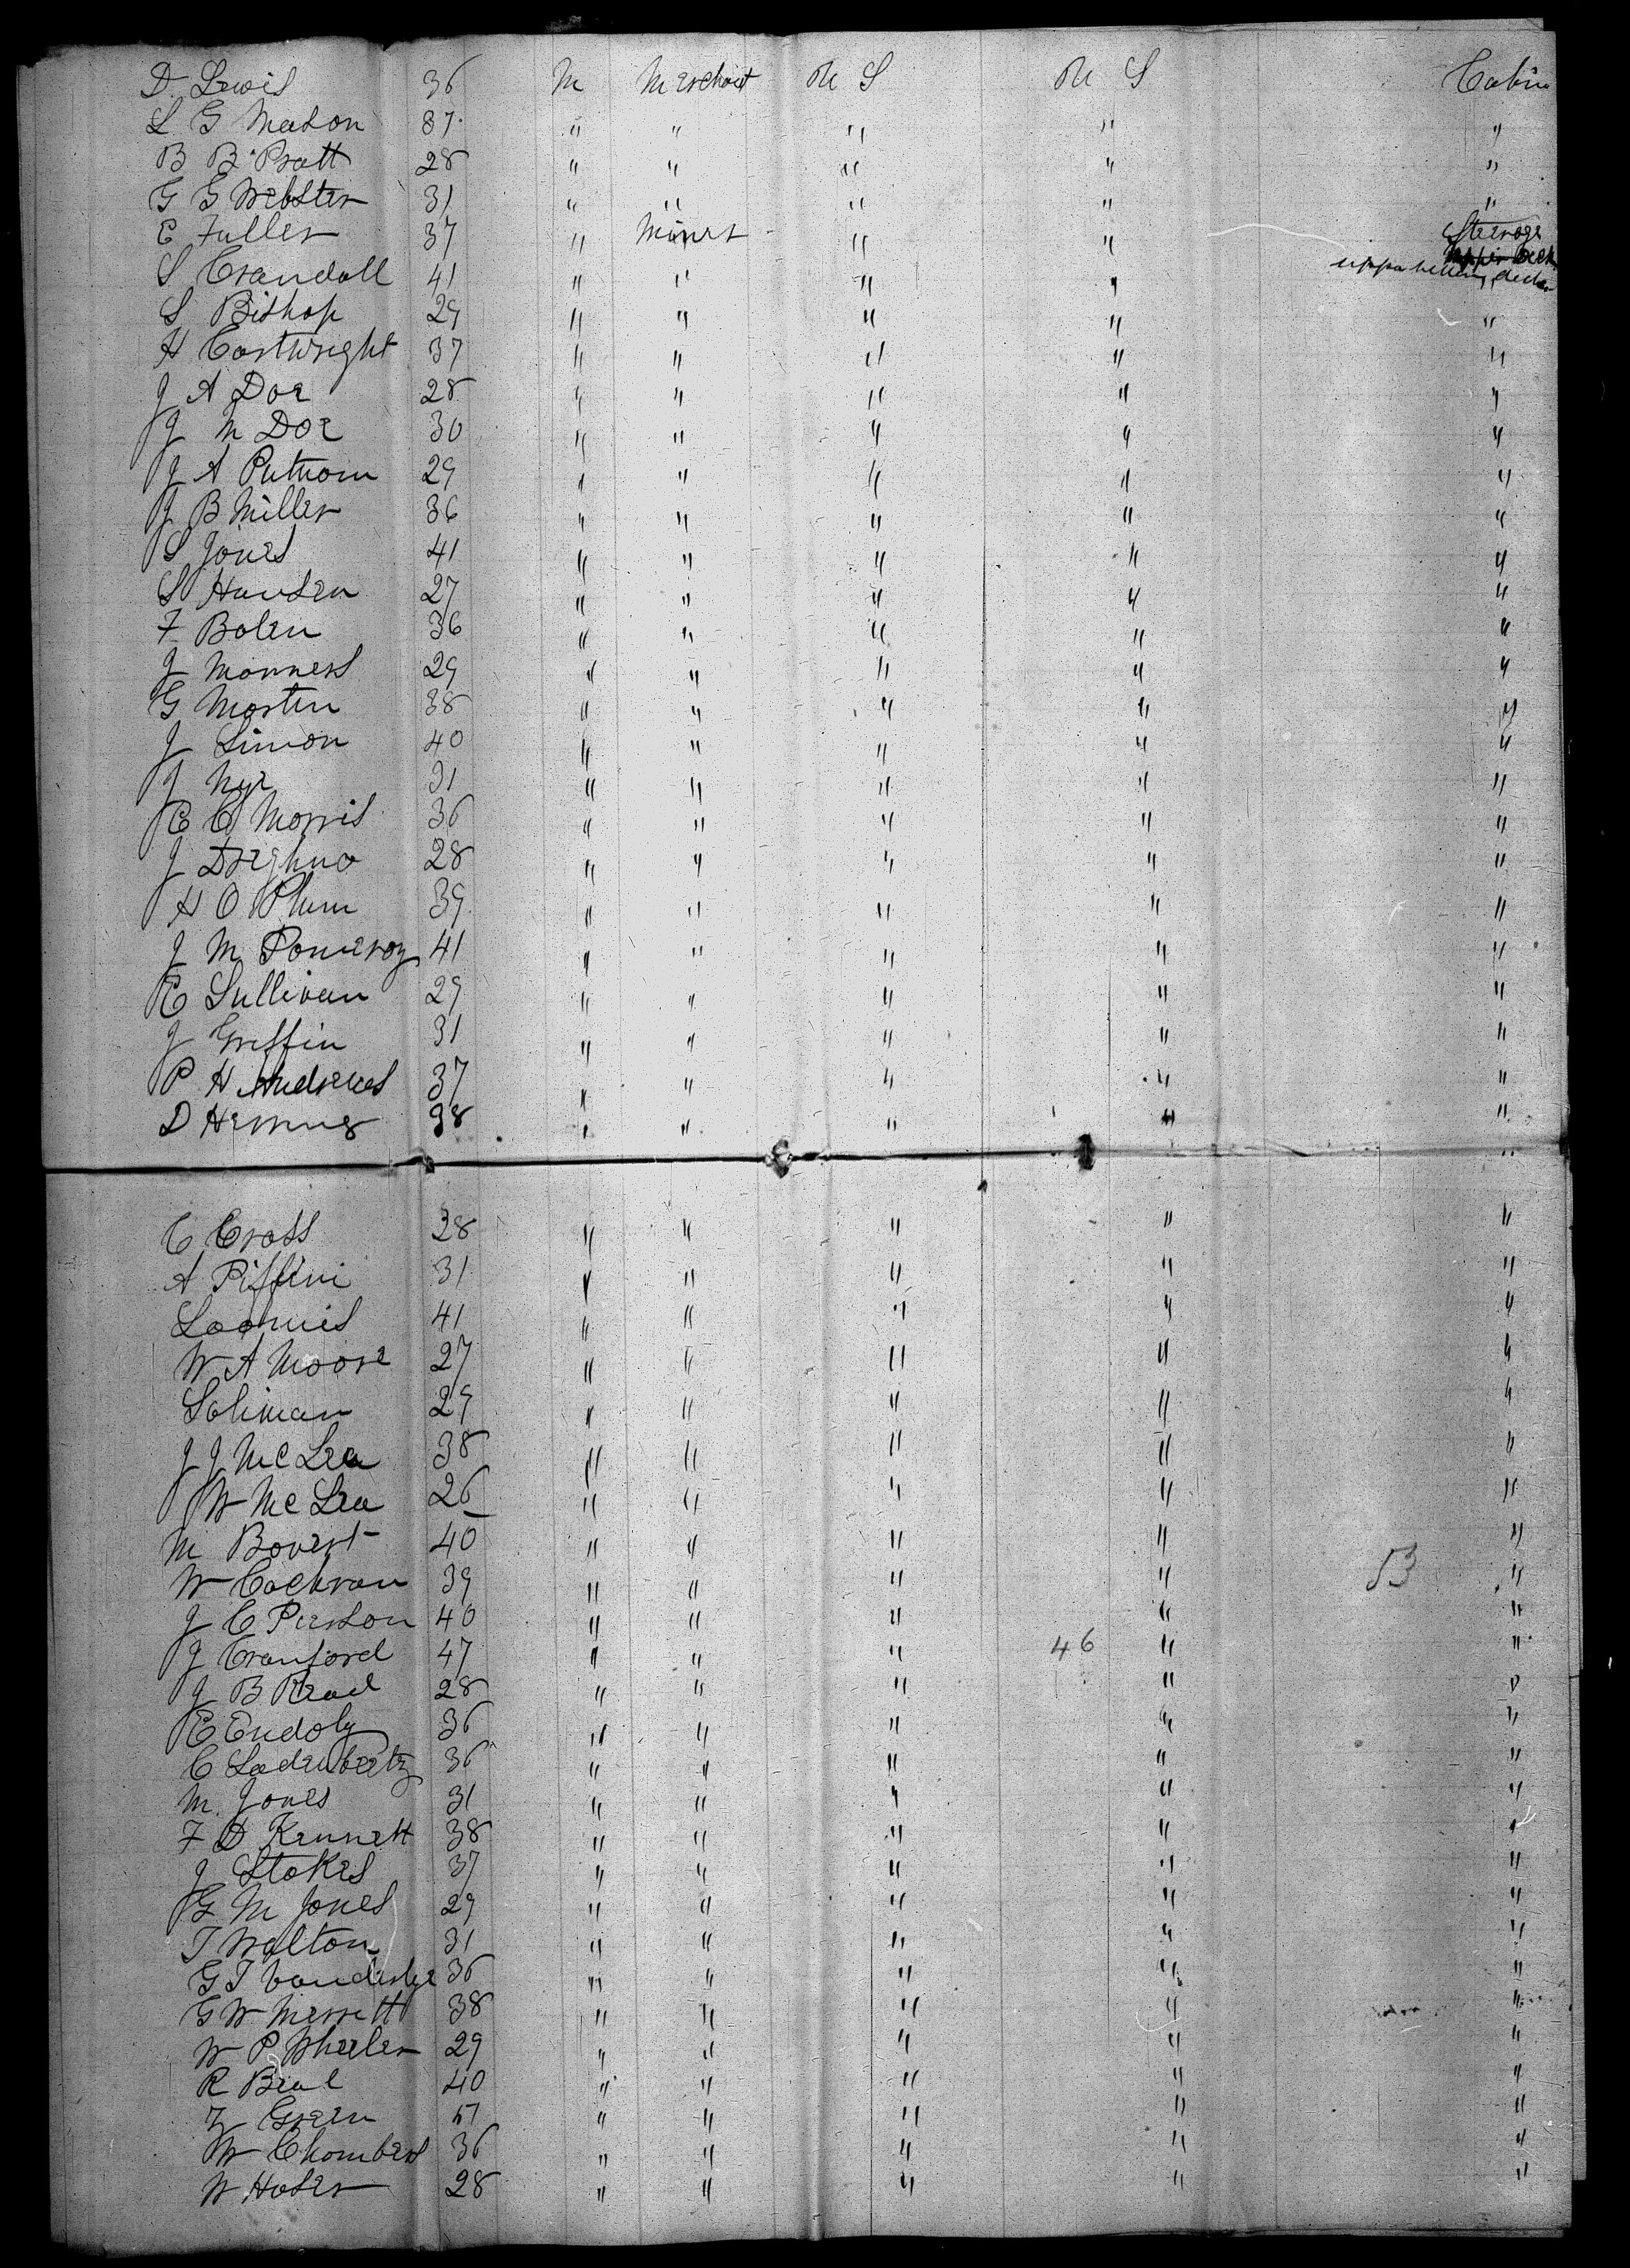 D. Lewis 36 M Merchant U S U S Cabin
L G Matson 37 " " " " "
B B Pratt 28 " " " " "
G G Webster 31 " " " " "
E Fuller 37 " Miner " " Steerage
S Crandall 41 " " " " upper between decks
S Bishop 29 " " " " "
H Cartwright 37 " " " " "
J A Doe 28 " " " " "
J M Doe 30 " " " " "
J A Putnam 29 " " " " "
J B Miller 36 " " " " "
S Jones 41 " " " " "
S Hansen 27 " " " " "
F Bolen 36 " " " " "
J Manners 29 " " " " "
G Martin 38 " " " " "
J Simon 40 " " " " "
J Nye 31 " " " " "
E C Morris 36 " " " " "
J 28 " " " " "
H O Plum 39 " " " " "
J M Pomeroy 41 " " " " "
E Sullivan 29 " " " " "
J Griffin 31 " " " " "
P H Andrews 37 " " " " "
D 38 " " " " "
"
C Cross 28 " " " " "
A Piffini 31 " " " " "
Loomis 41 " " " " "
W A Moore 27 " " " " "
Soliman 29 " " " " "
J J McLea 38 " " " " "
W McLea 26 " " " " "
M 40 " " " " "
W Cochran 39 " " " " 53 "
J C Pierson 40 " " " " "
J Cranford 47 " " " 46 " "
J B Read 28 " " " " "
E 36 " " " " "
C 36 " " " " "
M. Jones 31 " " " " "
F D Kennett 38 " " " " "
J Stokes 37 " " " " "
G M Jones 29 " " " " "
T Walton 31 " " " " "
G T 36 " " " " "
G W Merrett 38 " " " " "
W P Wheeler 29 " " " " "
R Beal 40 " " " " "
Z Green 51 " " " " "
W Chambers 36 " " " " "
W 28 " " " " "